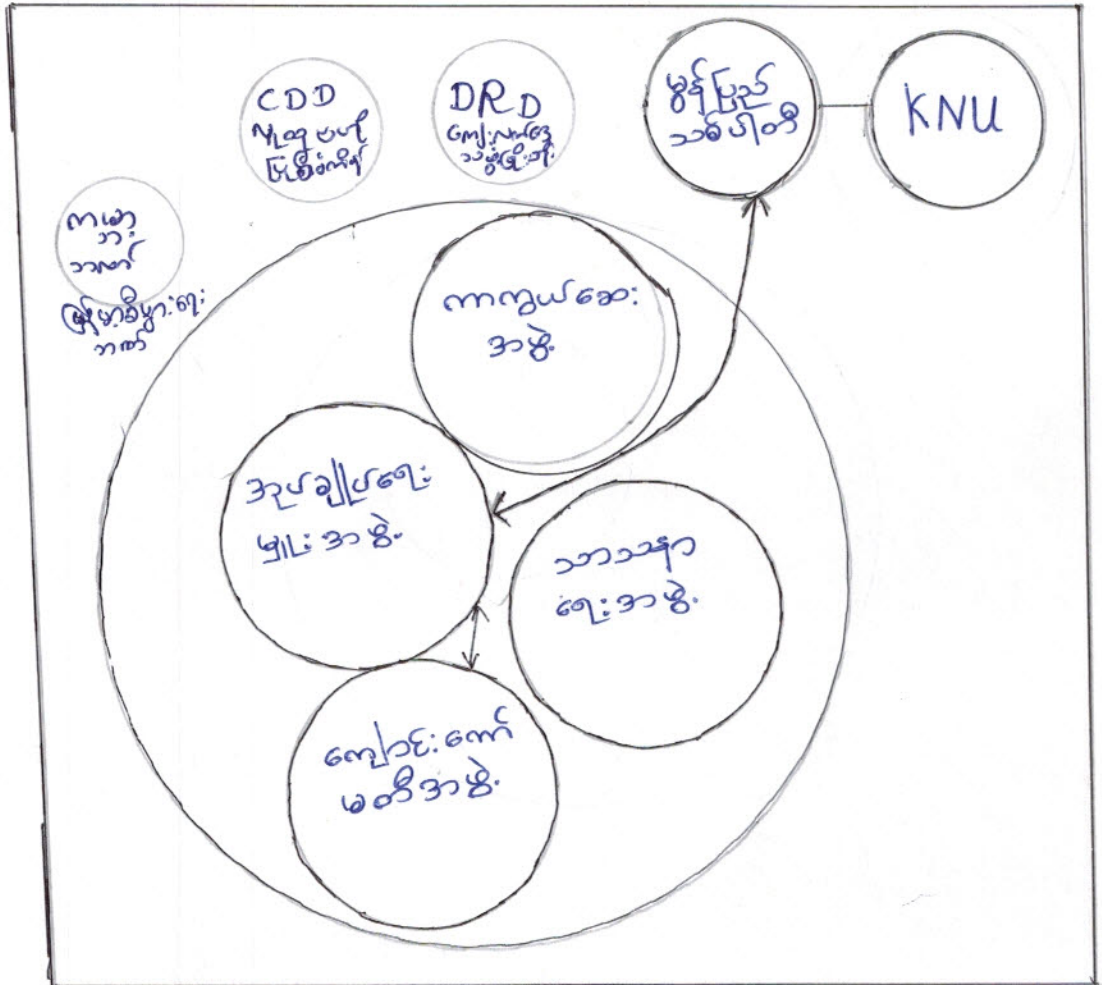 CDD
DRD
ကျေးလက်ဒေသ
ဖွံ့ဖြိုးရေး
မွန်ပြည်
သစ်ပါတီ
KNU
ကမ္ဘာ့
ဘဏ်
မြန်မာ့စီးပွားရေး
ဘဏ်
ကာကွယ်ဆေး
အဖွဲ့
အုပ်ချုပ်ရေး
မှူးအဖွဲ့
သာသနာ
ရေးအဖွဲ့
ကျောင်းကော်
မတီအဖွဲ့